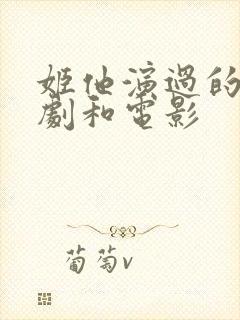 姬他演過的
劇和電影
葡萄v